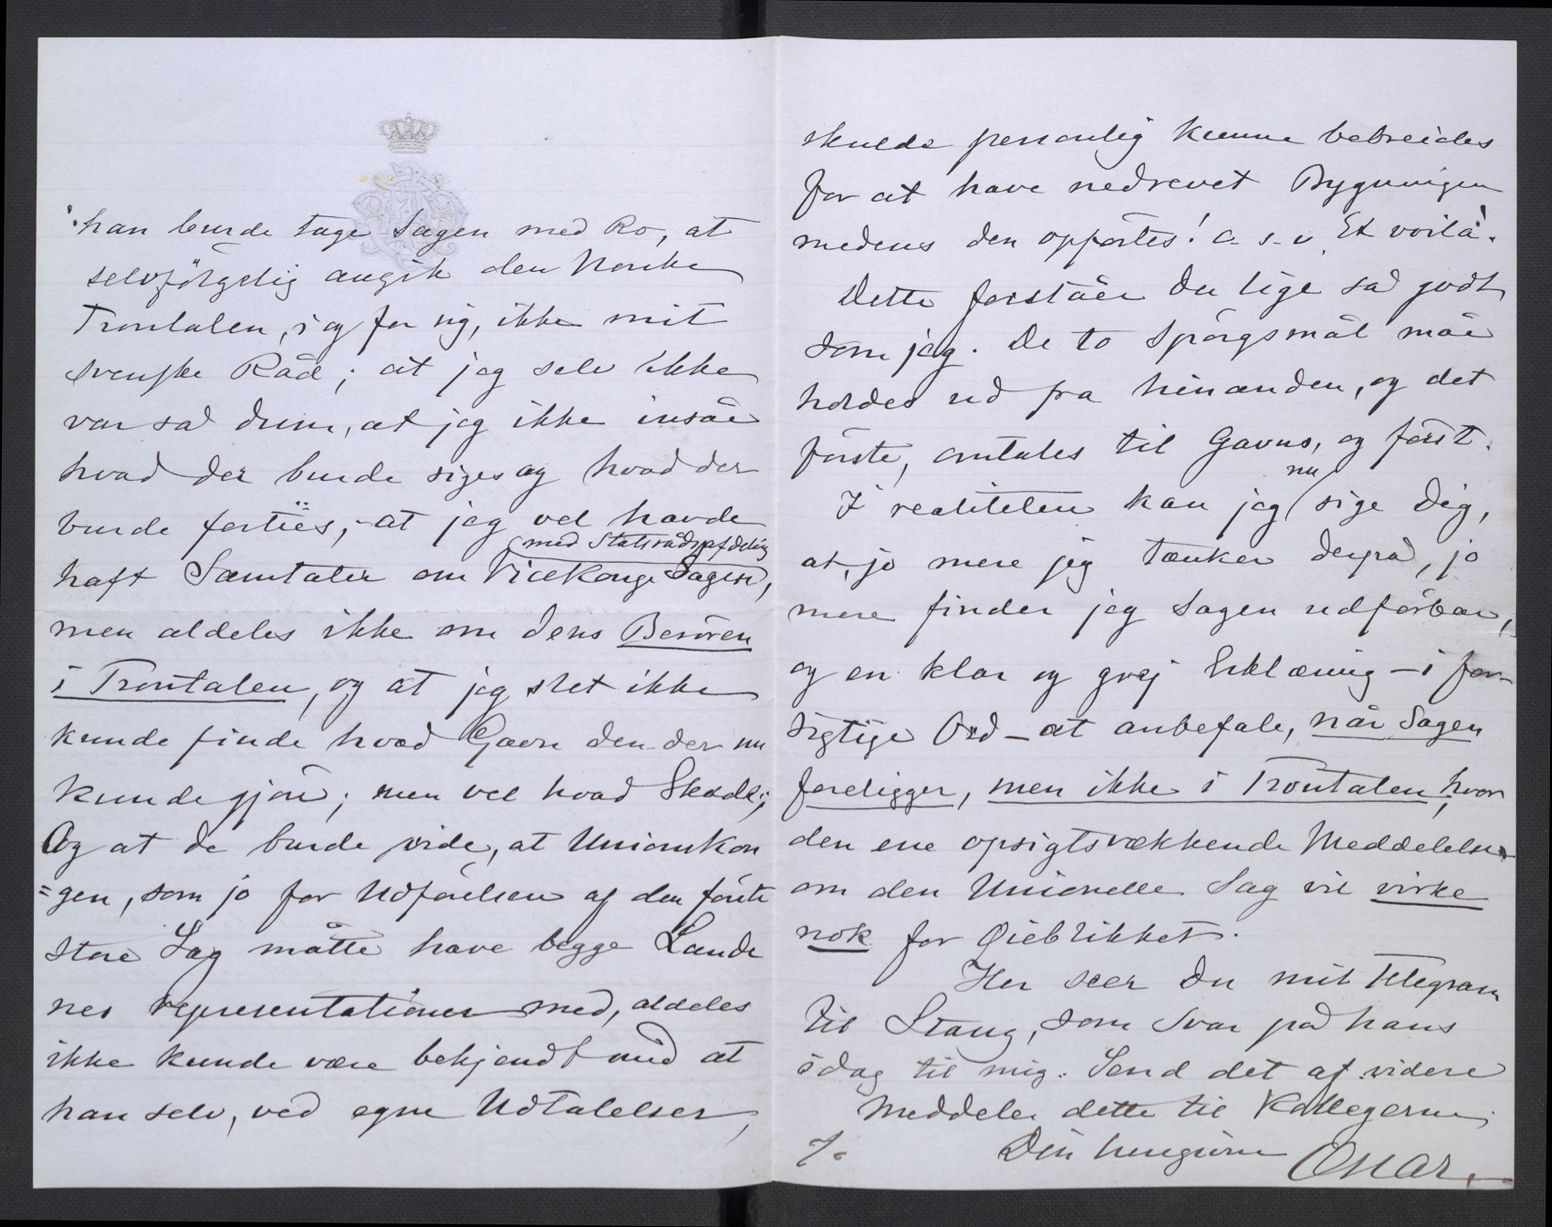 han burde tage Sagen med Ro, at
selvfölgelig angik den Norske
Trontalen, i og for sig, ikke mit
svenske Råd; at jeg selv ikke
var så dum, at jeg ikke insåe
hvad der burde siges og hvad der
burde forties; - at jeg vel havde
med Statsrådsafdeling
haft Samtaler om Vicekonge Sagen,
men aldeles ikke om dens Berören
i Trontalen, og at jeg slet ikke
kunde finde hvad Gavn den der nu
kunde gjöre; men vel hvad Skade;
Og at de burde vide, at Unionskon
=gen, som jo for Udförelsen af den förste
store Sag måtte have begge Lande
nes representationer med, aldeles
ikke kunde være bekjendt med at
han selv, ved egne Udtalelser,
skulde personlig kunne bebreides
for at have nedrevet Bygningen
medens den opförtes! o. s. v. Et voilà!
Dette forståer Du lige så godt
som jeg. De to Spörgsmål måe
holdes ud fra hinanden, og det
förste, omtales til Gavns, og först.
nu
I realiteten kan jeg sige Dig,
at, jo mere jeg tænker derpå, jo
mere finder jeg Sagen udförbar,
og en klar og grej Erklæring - i for-
sigtige Ord - at anbefale, når Sagen
foreligger, men ikke i Trontalen, hvor
den ene opsigtsvækkende Meddelelse
om den Unionelle Sag vil virke
nok for Øieblikket.
Her seer Du mit Telegram
til Stang, som Svar på hans
idag til mig. Send det af videre
Meddeler dette til Kollegerne
%
Din hengivne Oscar.